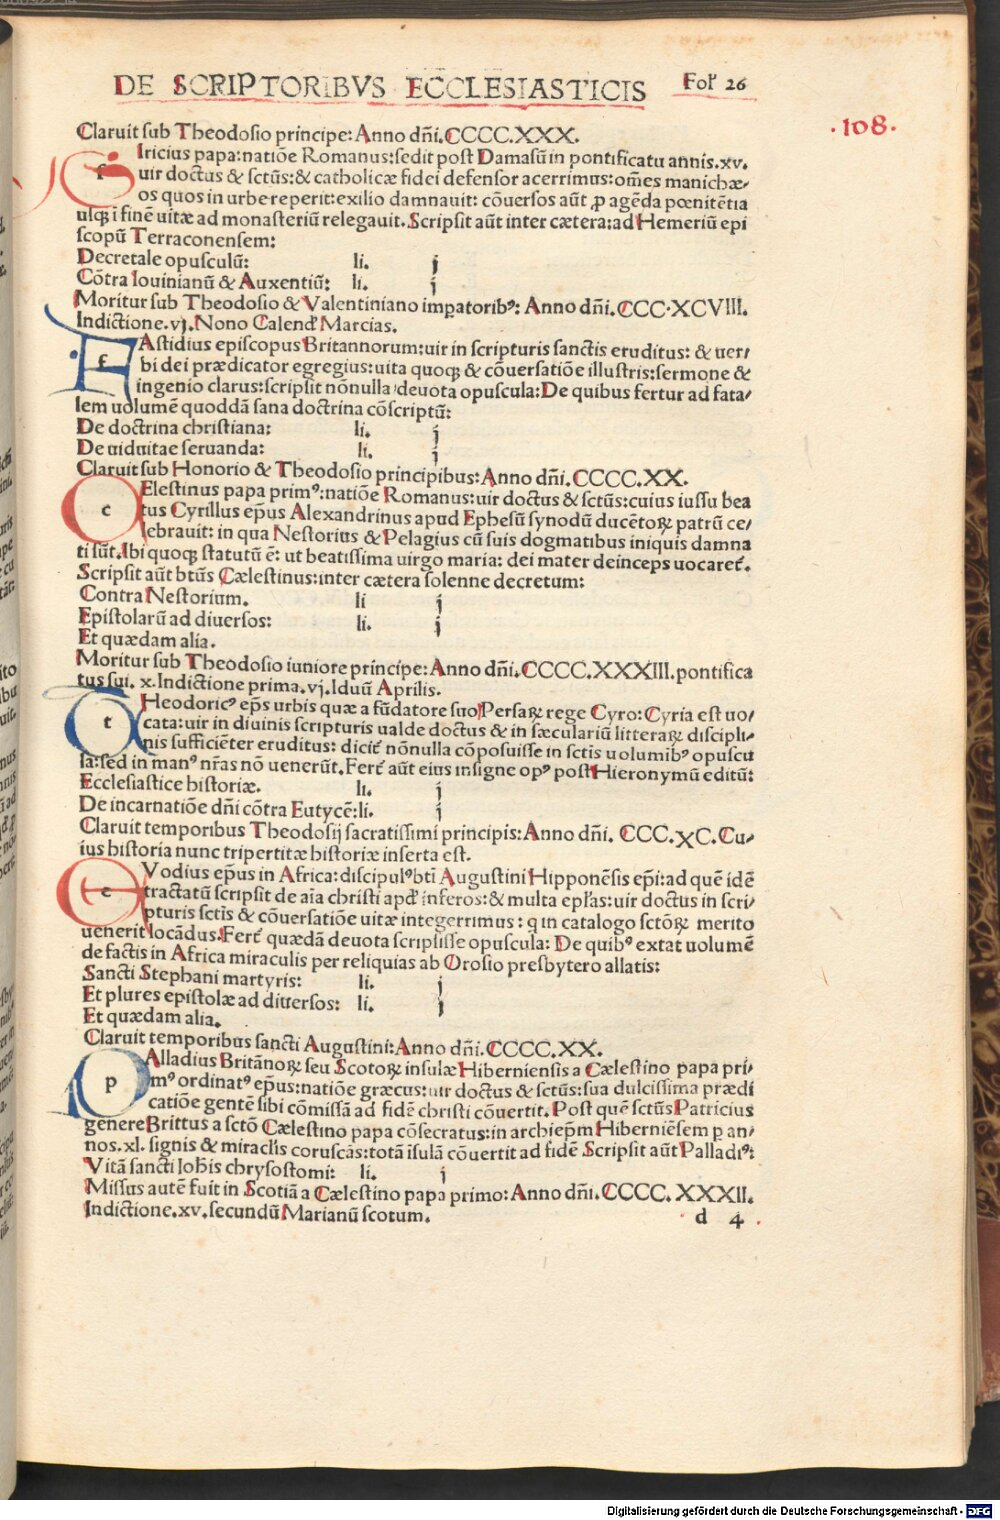 DE SCRIPTORIBVS ECCLESIASTICIS Fol' 26
.108.
Claruit sub Theodosio principe: Anno dñi. CCCC.XXX.
sIricius papa: natiõe Romanus: sedit post Damasũ in pontificatu annis. xv.
uir doctus & sctũs: & catholicæ fidei defensor acerrimus: om̃es manichæ-
os quos in urbe reperit: exilio damnauit: cõuersos aũt ꝓ agẽda pœnitẽtia
usqꝫ ĩ finẽ uitæ ad monasteriũ relegauit. Scripsit aũt inter cætera: ad Hemeriũ epi
scopũ Terraconensem:
Decretale opusculũ: li. j
Cõtra Iouinianũ & Auxentiũ: li. j
Moritur sub Theodosio & Valentiniano imꝑatoribꝰ: Anno dñi. CCC.XCVIII.
Indictione. vj. Nono Calend' Marcias.
fAstidius episcopus Britannorum: uir in scripturis sanctis eruditus: & uer/
bi dei prædicator egregius: uita quoqꝫ & cõuersatiõe illustris: sermone &
ingenio clarus: scripsit nõnulla deuota opuscula: De quibus fertur ad fata/
lem uolumẽ quoddã sana doctrina cõscriptũ:
De doctrina christiana: li. j
De uiduitae seruanda: li. j
Claruit sub Honorio & Theodosio principibus: Anno dñi. CCCC.XX.
cElestinus papa primꝰ: natiõe Romanus: uir doctus & sctũs: cuius iussu bea
tus Cyrillus ep̃us Alexandrinus apud Ephesũ synodũ ducẽtoꝝ patrũ ce/
lebrauit: in qua Nestorius & Pelagius cũ suis dogmatibus iniquis damna
ti sũt. Ibi quoqꝫ statutũ ẽ: ut beatissima uirgo maria: dei mater deinceps uocaret'.
Scripsit aũt btũs Cælestinus: inter cætera solenne decretum:
Contra Nestorium. li j
Epistolarũ ad diuersos: li. j
Et quædam alia.
Moritur sub Theodosio iuniore principe: Anno dñi. CCCC.XXXIII. pontifica
tus sui. x. Indictione prima. vj. Iduũ Aprilis.
tHeodoricꝰ ep̃s urbis quæ a fũdatore suo Persaꝝ rege Cyro: Cyria est uo/
cata: uir in diuinis scripturis ualde doctus & in sæculariũ litteraꝝ discipli/
nis sufficiẽter eruditus: dicit' nõnulla cõposuisse in sctis uolumibꝰ opuscu
la: sed in manꝰ nr̃as nõ uenerũt. Fert' aũt eius insigne opꝰ post Hieronymũ editũ:
Ecclesiastice historiæ. li. j
De incarnatiõe dñi cõtra Eutycẽ: li. j
Claruit temporibus Theodosij sacratissimi principis: Anno dñi. CCC.XC. Cu/
ius historia nunc tripertitæ historiæ inserta est.
eVodius ep̃us in Africa: discipulꝰ bti Augustini Hipponẽsis ep̃i: ad quẽ idẽ
tractatũ scripsit de aĩa christi apd' inferos: & multa ep̃las: uir doctus in scri/
pturis sctis & cõuersatiõe uitæ integerrimus: q in catalogo sctõꝝ merito
uenerit locãdus. Fert' quædã deuota scripsisse opuscula: De quibꝰ extat uolumẽ
de factis in Africa miraculis per reliquias ab Orosio presbytero allatis:
Sancti Stephani martyris: li. j
Et plures epistolæ ad diuersos: li. j
Et quædam alia.
Claruit temporibus sancti Augustini: Anno dñi. CCCC.XX.
pAlladius Britãnoꝝ seu Scotoꝝ insulæ Hiberniensis a Cælestino papa pri/
mꝰ ordinatꝰ ep̃us: natiõe græcus: uir doctus & sctũs: sua dulcissima prædi
catiõe gentẽ sibi cõmissã ad fidẽ christi cõuertit. Post quẽ sctũs Patricius
genere Brittus a sctõ Cælestino papa cõsecratus: in archiep̃m Hiberniẽsem ꝑ an/
nos. xl. signis & miraclis coruscãs: totã ĩsulã cõuertit ad fidẽ Scripsit aũt Palladiꝰ:
Vitã sancti Ioh̃is chrysostomi: li. j
Missus autẽ fuit in Scotiã a Cælestino papa primo: Anno dñi. CCCC.XXXII.
Indictione. xv. secundũ Marianũ scotum.
d 4
Digitalisierung gefördert durch die Deutsche Forschungsgemeinschaft - DFG